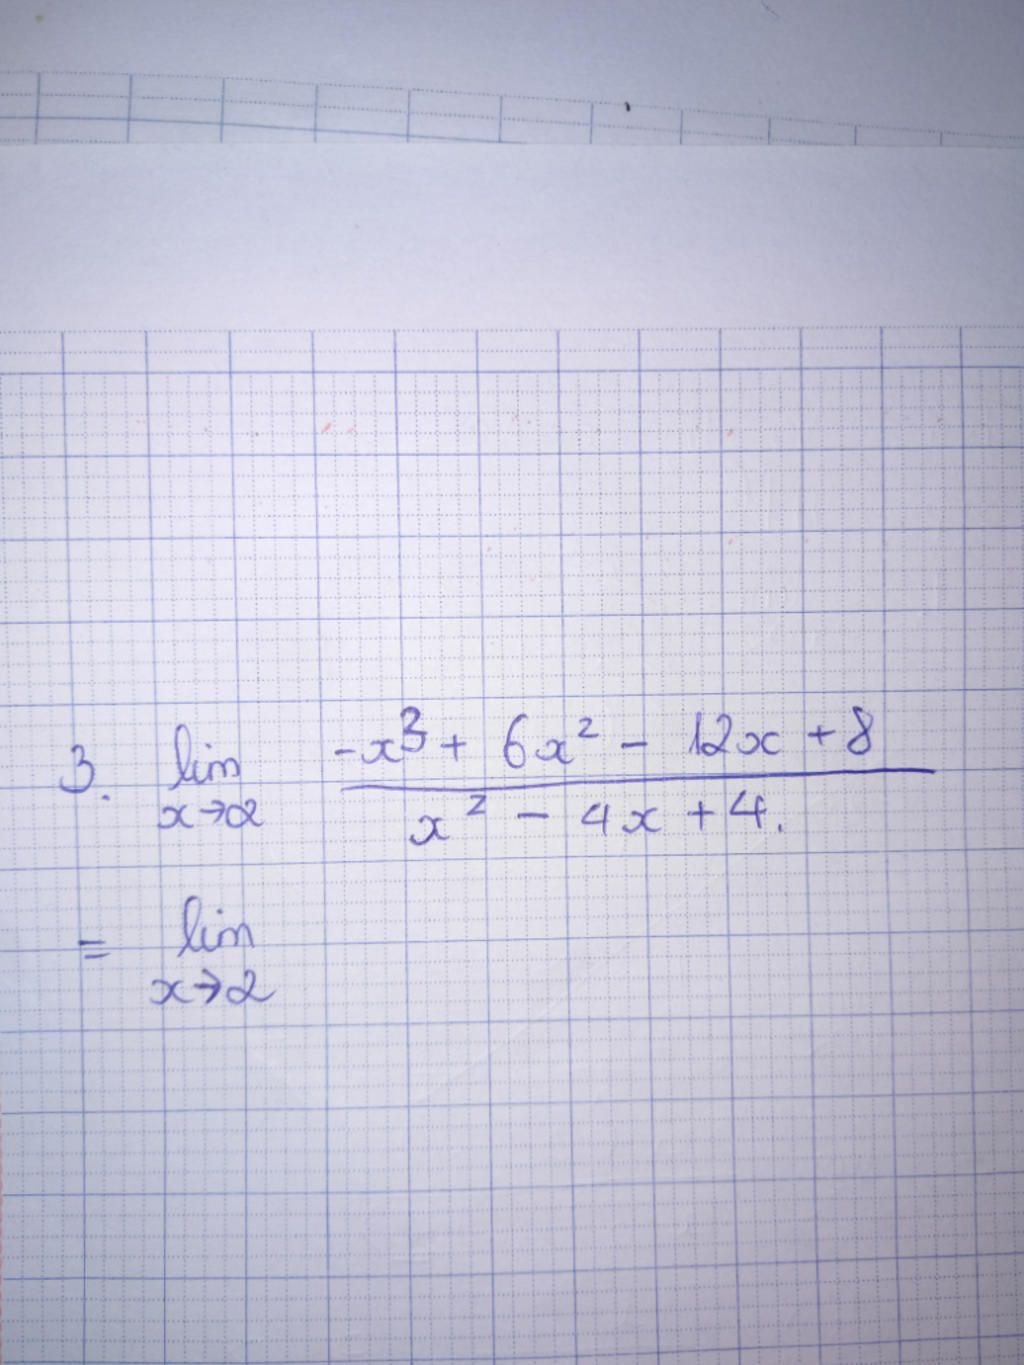 3. lim -x³ + 6x² - 12x + 8
x→2 x² - 4x + 4.
= lim
x→2